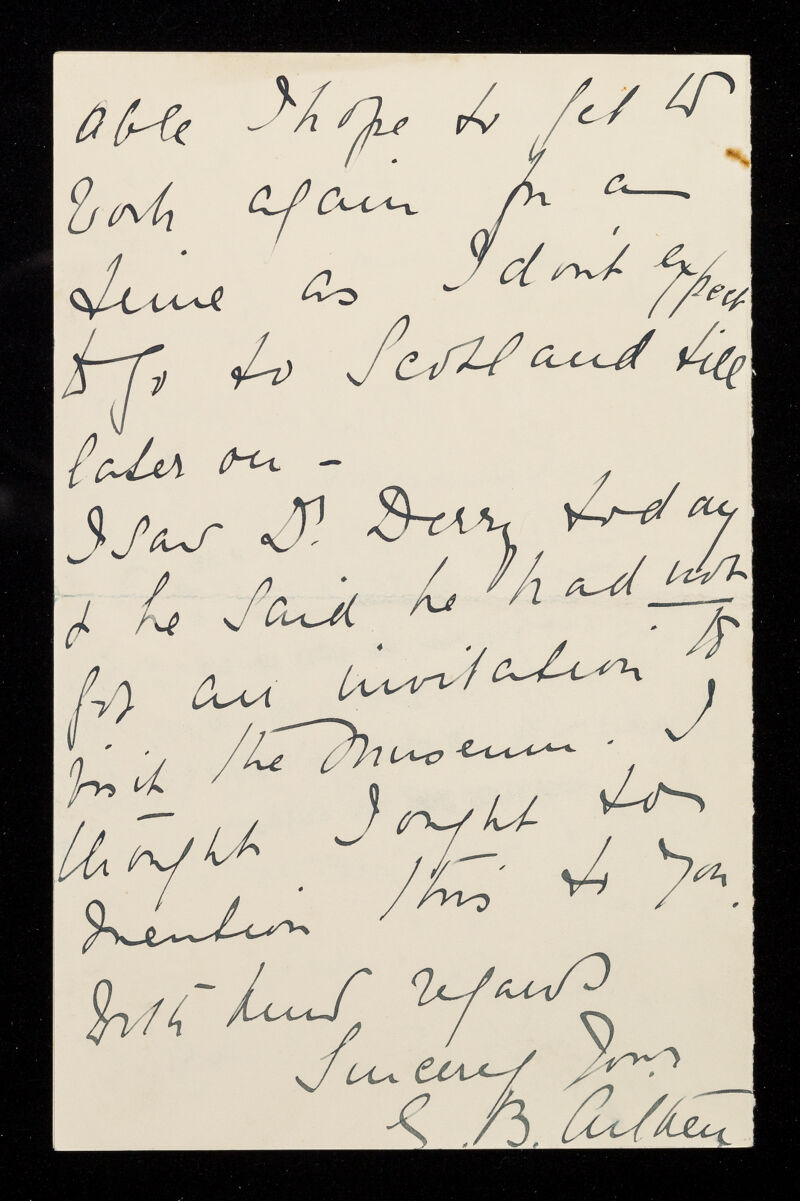 able I hope to get to
work again for a
time as I don't expect
to go to Scotland till
later on -
I saw Dr. Derry today
& he said he had not
got an invitation to
visit the Museum. I
thought I ought to
mention this to you.
With kind regards
Sincerely Yours
B. Aitken